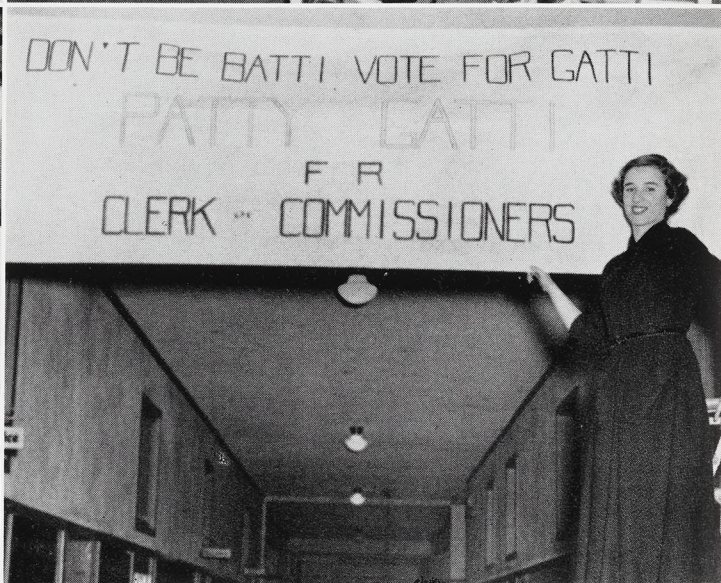 DON'T BE BATTI VOTE FOR GATTI
PATTY GATTI
F R
CLERK OF COMMISSIONERS